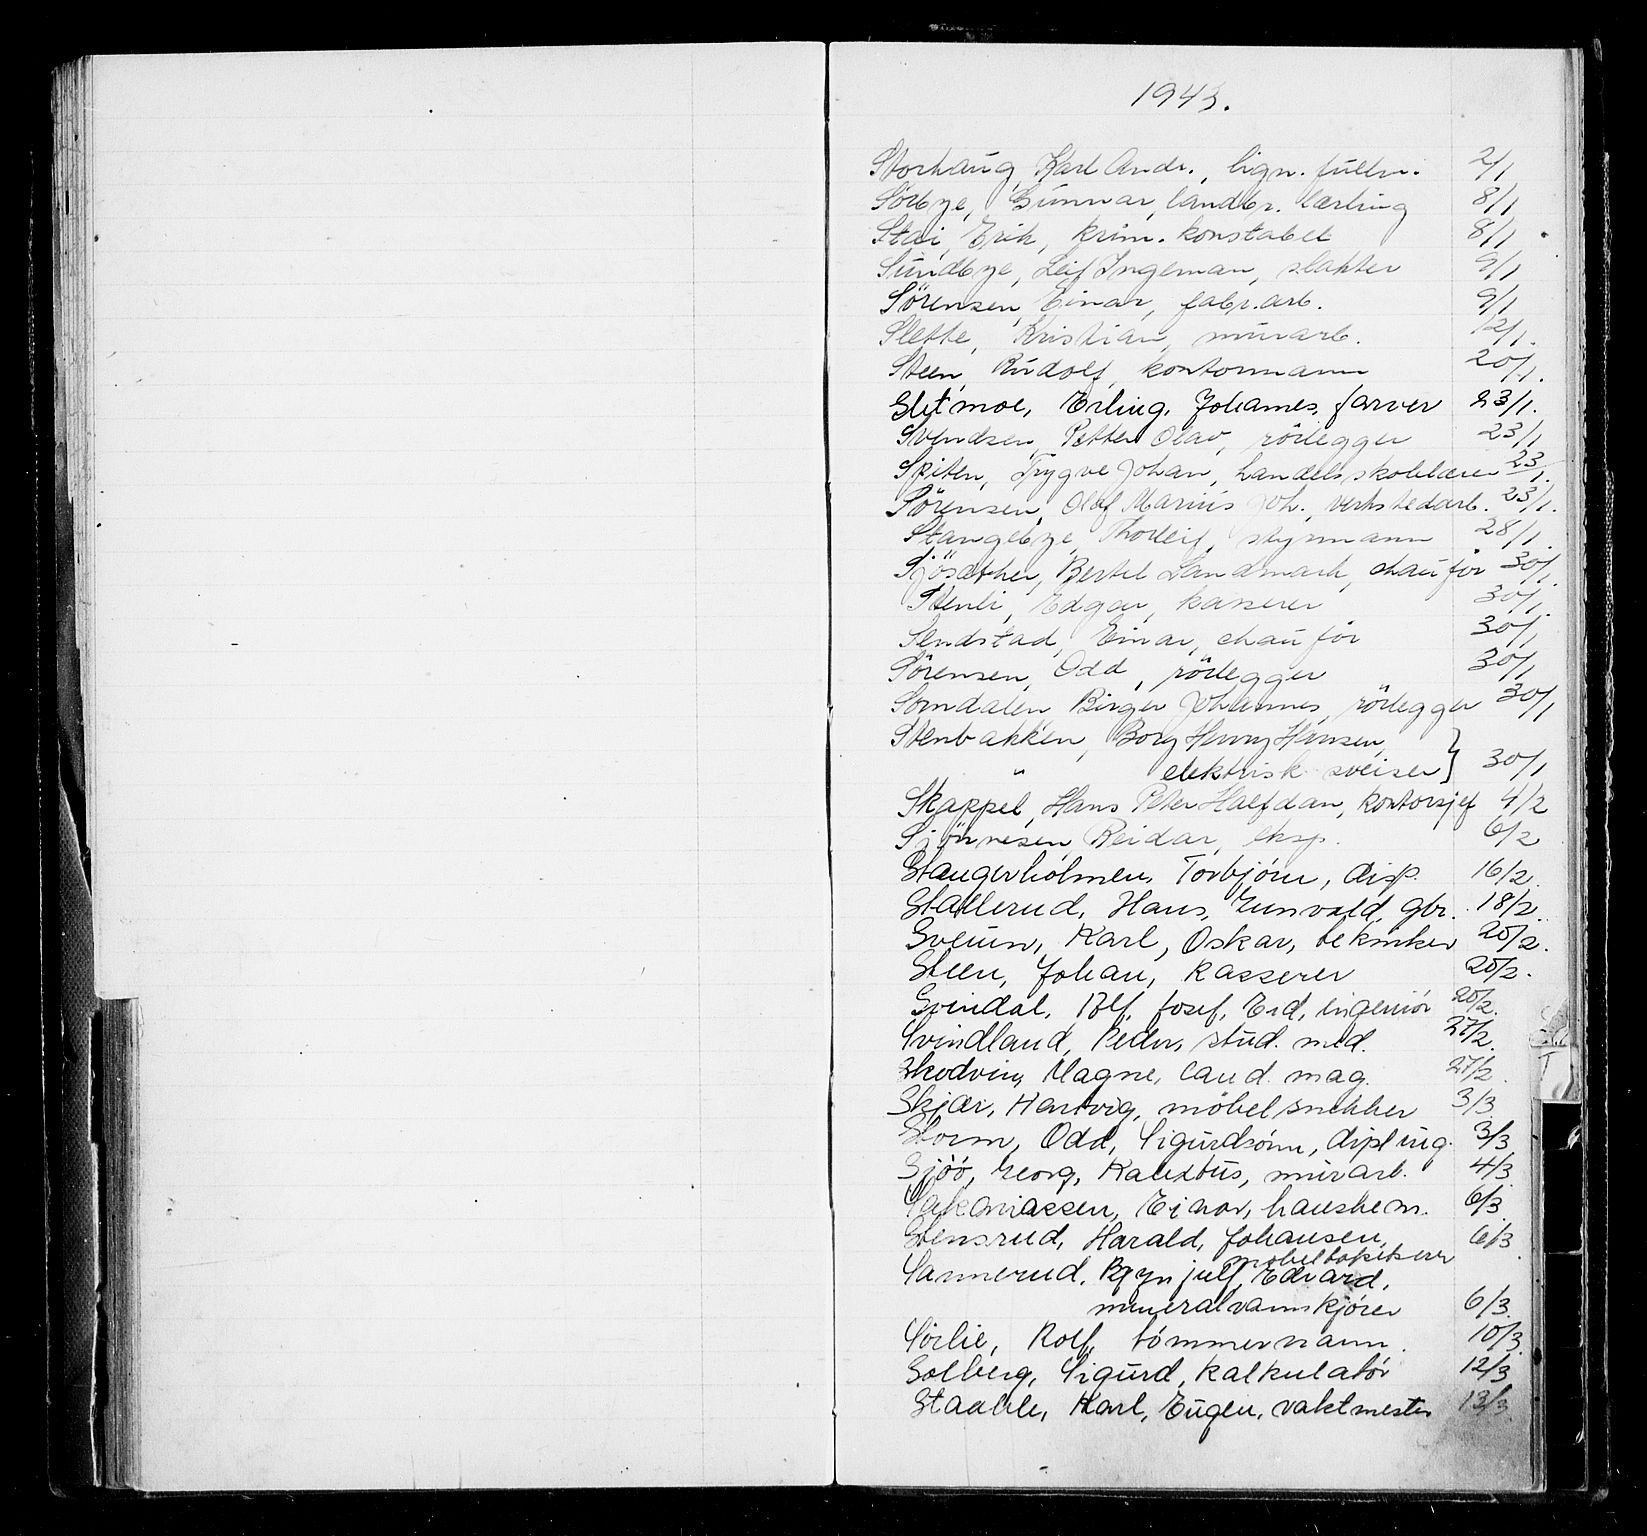 1943.
Storhaug, Karl Andr., lign. fullm. 2/1
Sörbye, Gunnar, landbr. lærling 8/1
Stai, Erik, krim. konstabel 8/1
Sundbye, Leif Ingeman, slakter 9/1
Sörensen, Einar, fabr. arb. 9/1
Slette, Kristian, murarb. 12/1.
Steen, Rudolf, kontormann 20/1.
Slitmoe, Erling, Johannes, farver 23/1.
Svendsen, Petter Olav, rörlegger 23/1
Spiten, Trygve Johan, handelsskolelærer 23/1.
Sörensen, Olaf Marius Joh., verkstedarb. 23/1.
Stangebye, Thorleif, styrmann 28/1.
Sjösæther, Bertel Landmark, chauför 30/1.
Stenli, Edgar, kasserer 30/1.
Sendstad, Einar, chauför 30/1
Sörensen, Odd, rörlegger 30/1
Somdalen Birger Johannes, rörlegger 30/1
Stenbakken, Borg Henry Hansen,
" elektrisk sveiser} 30/1
Skappel, Hans Peter Halfdan, kontorsjef 4/2
Sjönnesen, Reidar, eksp. 6/2
Stangerholmen, Torbjörn, disp. 16/2.
Stallerud, Hans, gbr. 18/2.
Sveum, Karl, Oskar, tekniker 20/2.
Steen, Johan, kasserer 20/2.
Svindal, Alf, Josef, ingeniör 20/2.
Svindland, Peder, stud. med. 27/2.
Skodvin, Magne, cand. mag. 27/2.
Skjær, Hartvig, möbelsnekker 3/3
Storm, Odd, Sigurdsönn, dipl ing. 3/3
Sjöö, Georg, Kalixtus, murarb. 4/3
Sakariassen, Einar, hausherm. 6/3.
Stensrud, Harald, Johansen, 6/3
möbeltapetserer
Sannerud, Brynjulf, Edvard,
mineralvannskjörer 6/3.
Sörlie, Rolf, tömmermann. 10/3.
Solberg, Sigurd, kalkulatör 12/3
Staahle, Karl, Eugen, vaktmester 13/3.